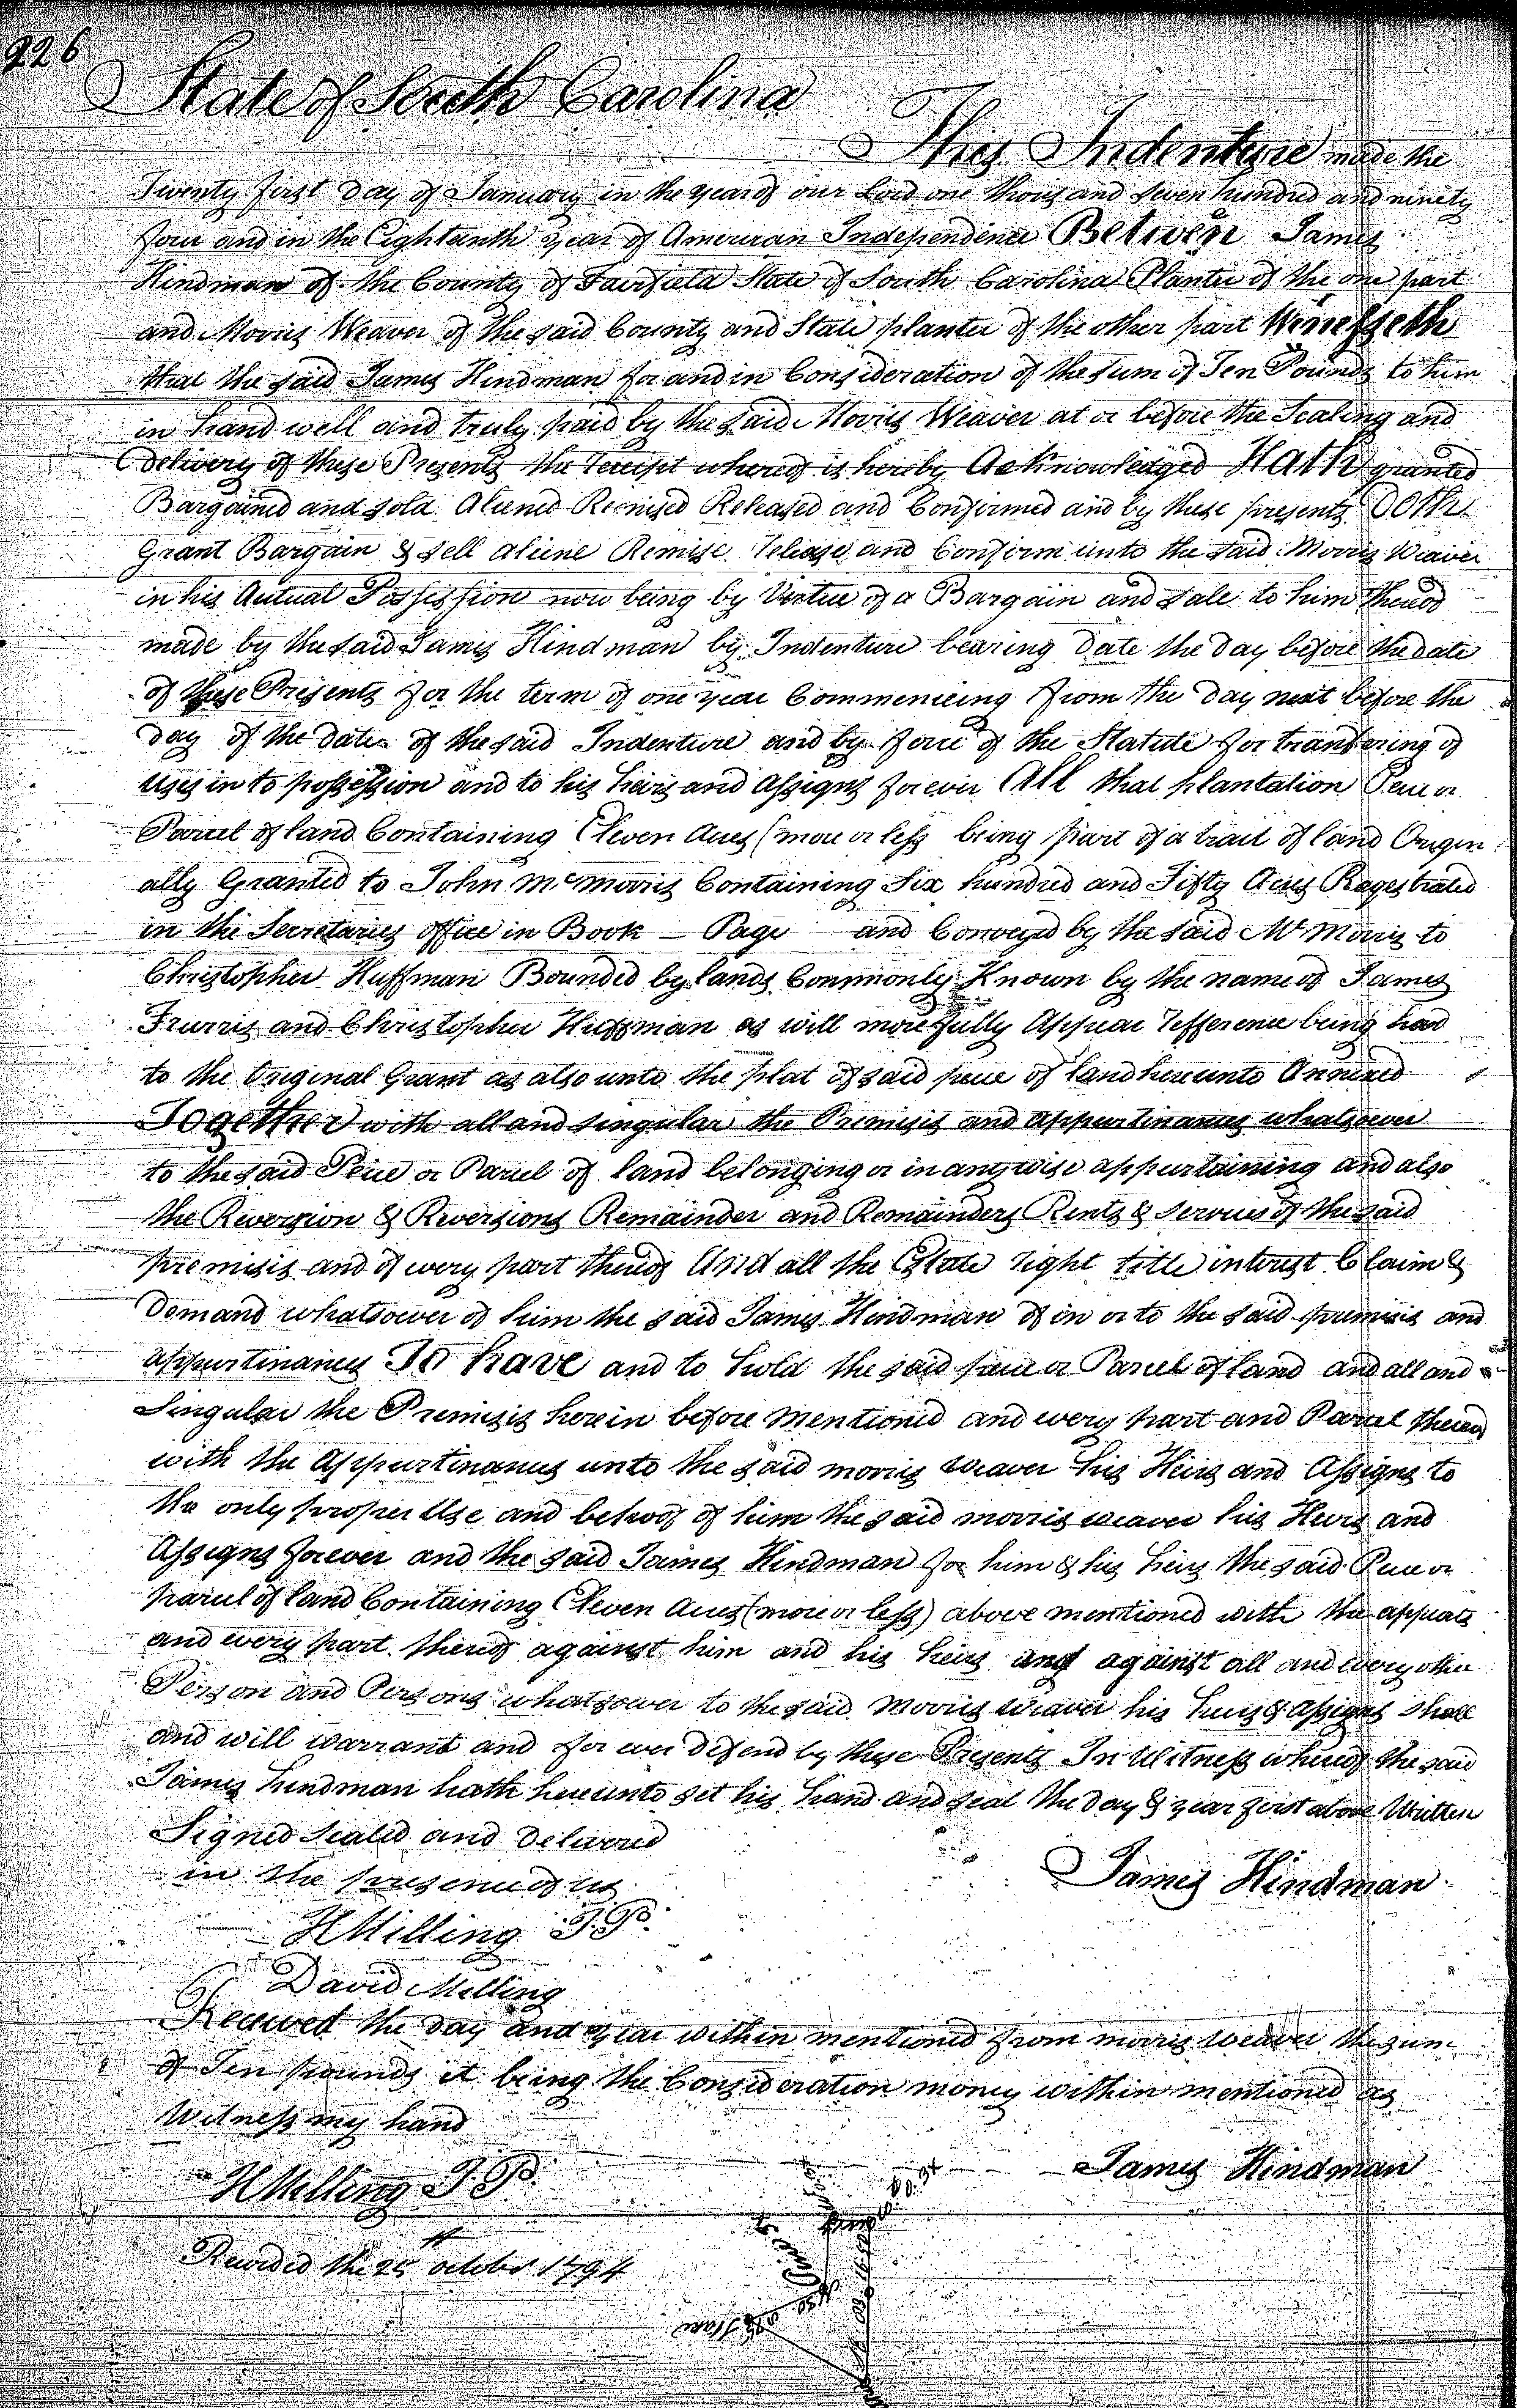 226
State of South Carolina
This Indenture made the
Twenty first day of January in the year of our Lord one thousand seven hundred and ninety
four and in the Eighteenth year of American Independence Between James
Hindman of the County of Fairfield State of South Carolina Planter of the one part
and Morris Weaver of the said County and State planter of the other part Witnesseth
that the said James Hindman for and in Consideration of the sum of Ten Pounds to him
in hand well and truly paid by the said Morris Weaver at or before the Sealing and
delivery of these Presents the receipt whereof is hereby Acknowledged Hath granted
Bargained and sold Aliened Remised Released and Confirmed and by these presents Doth
Grant Bargain & sell aliene Remise release and Confirm unto the said Morris Weaver
in his Actual Possession now being by Virtue of a Bargain and sale to him thereof
made by the said James Hindman by Indenture bearing date the day before the date
of these Presents for the term of one year Commencing from the day next before the
day of the date of the said Indenture and by force of the Statute for transfering of
uses in to possession and to his heirs and Assigns forever All that plantation Peice or
Parcel of land Containing Eleven Acres (more or less being part of a tract of land Origin
ally Granted to John McMorris Containing Six hundred and Fifty Acres Ragestrated
in the Secretaries office in Book — Page and Conveyed by the said Mc Morris to
Christopher Huffman Bounded by lands Commonly Known by the name of James
and Christopher Huffman as will more fully Appear refference being had
to the Original Grant as also unto the plat of said peice of land hereunto Annexed
Together with all and singular the Premisis and appurtinances whatsoever
to the said Peice or Parcel of land belonging or in any wise appurtaining and also
the Reversion & Reversions Remainder and Remainders Rents & Services of the said
premisis and of every part thereof And all the Estate right title interest Claim &
Demand whatsoever of him the said James Hindman of in or to the said premisis and
appurtinances To have and to hold the said peice or Parcel of land and all and
Singular the Premisis herein before mentioned and every part and Parcel thereof
with the Appurtinances unto the said morris weaver his Heirs and Assigns to
the only proper Use and behoof of him the said morris weaver his Heirs and
Assigns forever and the said James Hindman for him & his heirs the said Peice or
parcel of land Containing Eleven Acres (more or less) above mentioned with the appurts
and every part thereof against him and his heirs and against all and every other
Person and Persons whatsoever to the said Morris weaver his heirs & assigns shall
and will warrant and for ever defend by these Presents In Witness whereof the said
James hindman hath hereunto set his hand and seal the day & year first above Written
Signed sealed and delivered
in the presence of us
James Hindman
H Milling J.P.
David Milling
Received the day and year within mentioned from morris weaver the sum
of Ten pounds it being the Consideration money within mentioned as
Witness my hand
James Hindman
H Milling J.P.
Recorded the 25th october 1794